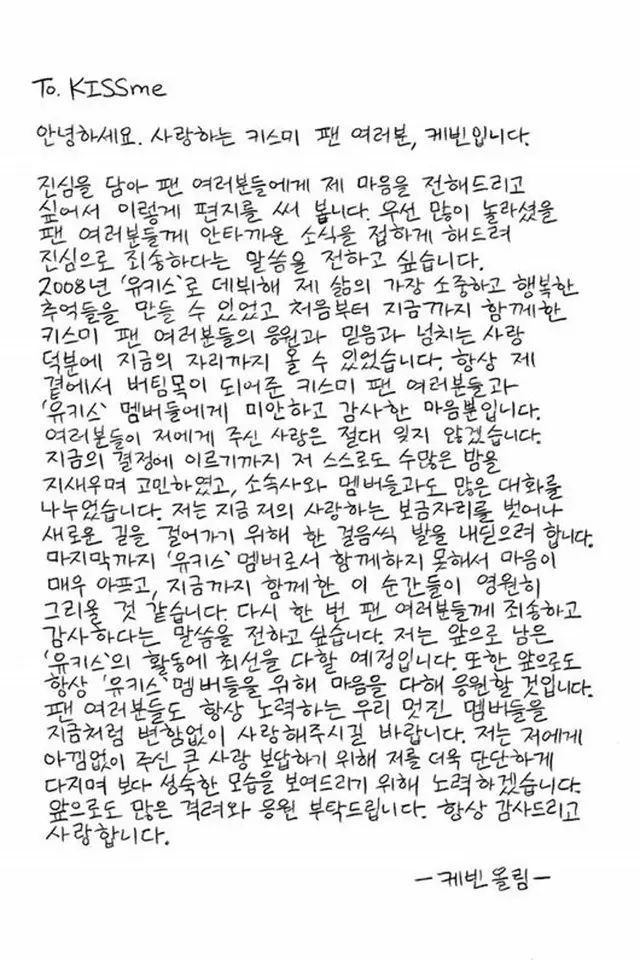 To. KISSme
안녕하세요. 사랑하는 키스미 팬 여러분, 케빈입니다.
진심을 담아 팬 여러분들에게 제 마음을 전해드리고
싶어서 이렇게 편지를 써 봅니다. 우선 많이 놀라셨을
팬 여러분들께 안타까운 소식을 접하게 해드려
진심으로 죄송하다는 말씀을 전하고 싶습니다.
2008년 '유키스'로 데뷔해 제 삶의 가장 소중하고 행복한
추억들을 만들 수 있었고 처음부터 지금까지 함께한
키스미 팬 여러분들의 응원과 믿음과 넘치는 사랑
덕분에 지금의 자리까지 올 수 있었습니다. 항상 제
곁에서 버팀목이 되어준 키스미 팬 여러분들과
'유키스' 멤버들에게 미안하고 감사한 마음뿐입니다.
여러분들이 저에게 주신 사랑은 절대 잊지 않겠습니다.
지금의 결정에 이르기까지 저 스스로도 수많은 밤을
지새우며 고민하였고, 소속사와 멤버들과도 많은 대화를
나누었습니다. 저는 지금 저의 사랑하는 보금자리를 벗어나
새로운 길을 걸어가기 위해 한 걸음씩 발을 내딛으려 합니다.
마지막까지 '유키스' 멤버로서 함께하지 못해서 마음이
매우 아프고, 지금까지 함께한 이 순간들이 영원히
그리울 것 같습니다. 다시 한 번 팬 여러분들께 죄송하고
감사하다는 말씀을 전하고 싶습니다. 저는 앞으로 남은
'유키스'의 활동에 최선을 다할 예정입니다. 또한 앞으로도
항상 '유키스' 멤버들을 위해 마음을 다해 응원할 것입니다.
팬 여러분들도 항상 노력하는 우리 멋진 멤버들을
지금처럼 변함없이 사랑해주시길 바랍니다. 저는 저에게
아낌없이 주신 큰 사랑 보답하기 위해 저를 더욱 단단하게
다지며 보다 성숙한 모습을 보여드리기 위해 노력하겠습니다.
앞으로도 많은 격려와 응원 부탁드립니다. 항상 감사드리고
사랑합니다.
-케빈 올림-